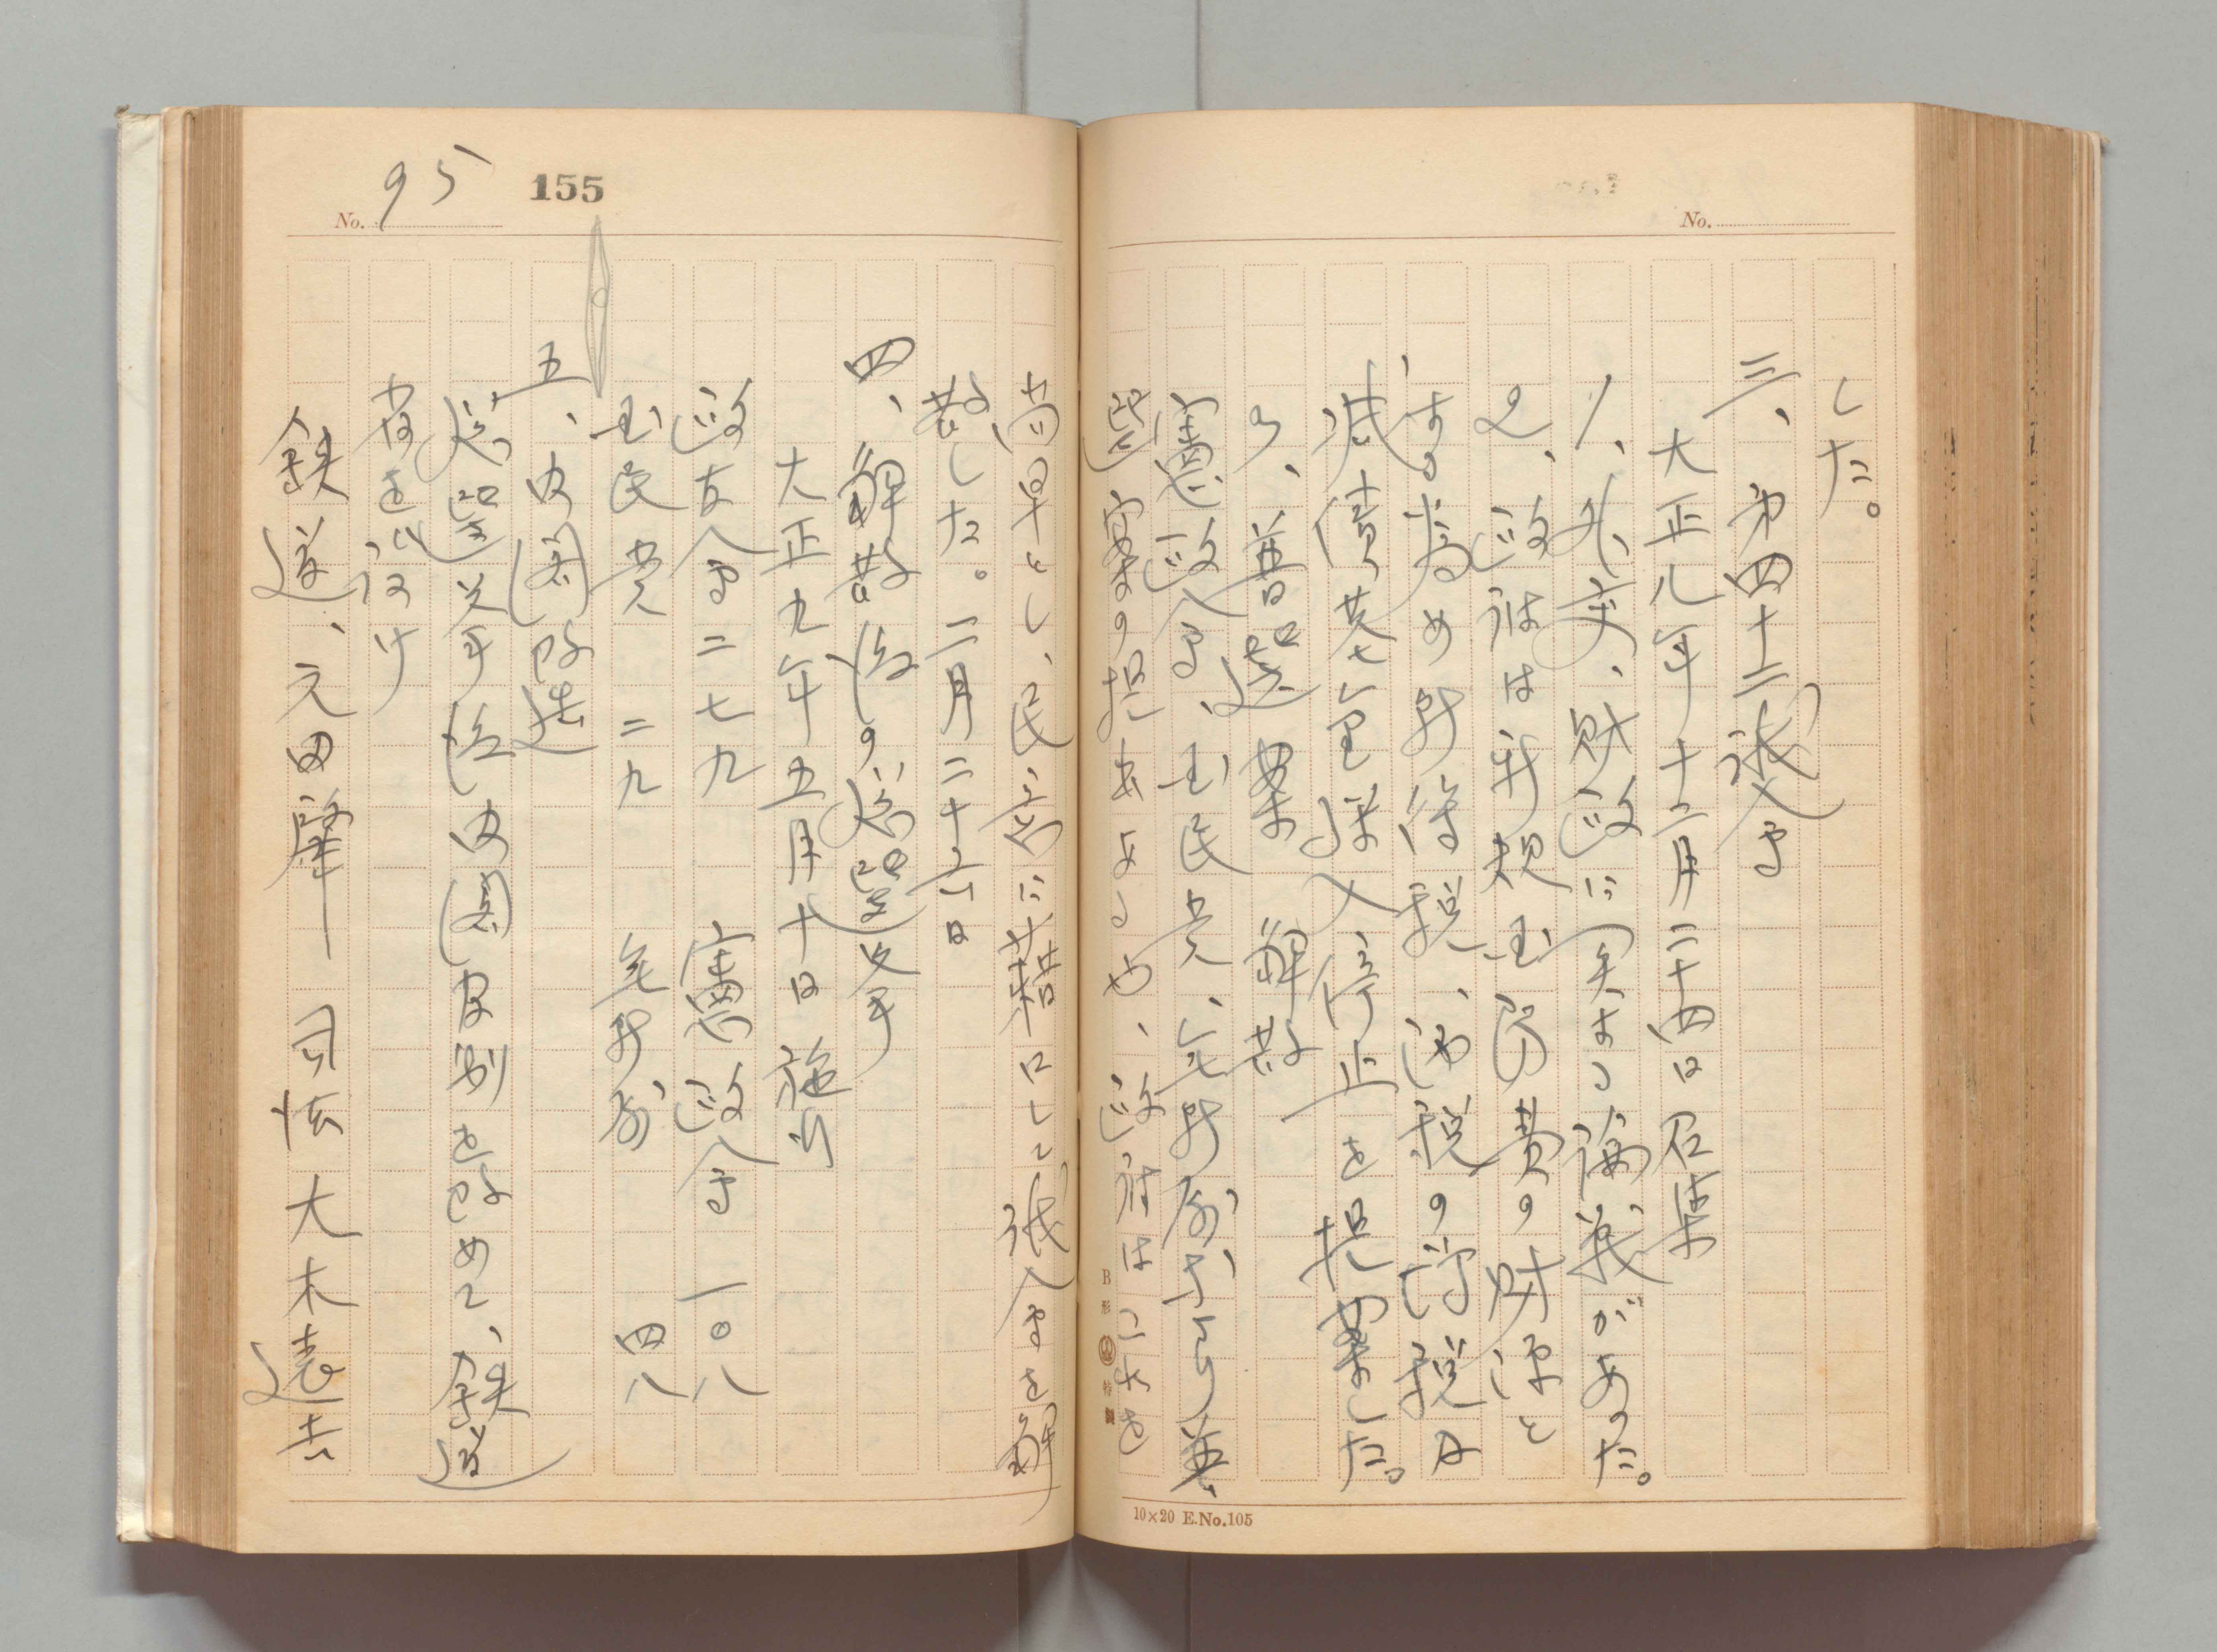 No.
した。
三、第四十二議会
大正八年十二月二十四日召集
1、外交、財政に関する論議があった。
2、政府は新規国防費の財源と
する為め所得税、酒税の増税及
減債基金繰入停止を提案した。
3、普選案 解散
憲政会、国民党、無所属より普
選案の提出あるや、政府はこれを
B形 特製
10×20 E.No.105
No. 95
155
尚早とし、民意に藉口して議会を解
散した。二月二十六日
四、解散后の総選挙
大正九年五月十日 施行
政友会二七九 憲政会 一〇八
国民党 二九 無所属 四八
五、内閣改造
総選挙后内閣官制を改めて、鉄道
省を設け
鉄道、元田肇 司法大木遠吉